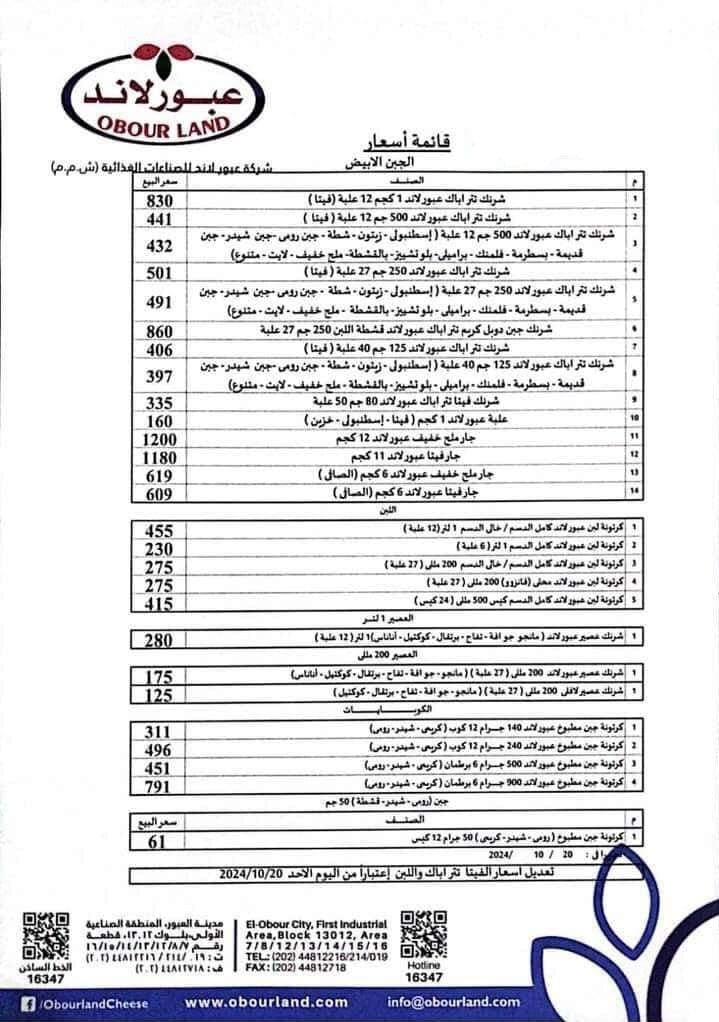 عبورلاند
OBOUR LAND
قائمة أسعار
الجبن الابيض
شركة عبور لاند للصناعات الغذائية (ش.م.م)
م الصنف سعر البيع
1 شرنك تتر اباك عبورلاند 1 كجم 12 علبة (فيتا ) 830
2 شرنك تتر اباك عبورلاند 500 جم 12 علبة (فيتا ) 441
3 شرنك تتر اباك عبورلاند 500 جم 12 علبة ( إسطنبولى - زيتون - شطة - جبن رومى -جبن شيدر- جبن
قديمة - بسطرمة - فلمنك - براميلى- بلو تشييز - بالقشطة- ملح خفيف - لايت - متنوع) 432
4 شرنك تتر اباك عبورلاند 250 جم 27 علبة ( فيتا ) 501
5 شرنك تتر اباك عبورلاند 250 جم 27 علبة ( إسطنبولى - زيتون - شطة - جبن رومى -جبن شيدر- جبن
قديمة - بسطرمة - فلمنك - براميلى - بلو تشييز - بالقشطة - ملح خفيف - لايت - متنوع) 491
6 شرنك جبن دوبل كريم تتر اباك عبورلاند قشطة اللبن 250 جم 27 علبة 860
7 شرنك تتر اباك عبورلاند 125 جم 40 علبة ( فيتا ) 406
8 شرنك تتر اباك عبورلاند 125 جم 40 علبة ( إسطنبولى - زيتون - شطة - جبن رومى -جبن شيدر- جبن
قديمة - بسطرمة - فلمنك - براميلى - بلو تشييز - بالقشطة - ملح خفيف - لايت - متنوع) 397
9 شرنك فيتا تتر اباك عبورلاند 80 جم 50 علبة 335
10 علبة عبورلاند 1 كجم ( فيتا - إسطنبولى - خزين ) 160
11 جار ملح خفيف عبورلاند 12 كجم 1200
12 جار فيتا عبورلاند 11 كجم 1180
13 جار ملح خفيف عبورلاند 6 كجم (الصافى ) 619
14 جار فيتا عبورلاند 6 كجم (الصافى ) 609
اللبن
1 كرتونة لبن عبورلاند كامل الدسم / خالى الدسم 1 لتر(12 علبة ) 455
2 كرتونة لبن عبورلاند كامل الدسم 1 لتر ( 6 علبة ) 230
3 كرتونة لبن عبورلاند كامل الدسم / خالى الدسم 200 مللى ( 27 علبة ) 275
4 كرتونة لبن عبورلاند محلى (فانزوو) 200 مللى ( 27 علبة ) 275
5 كرتونة لبن عبورلاند كامل الدسم كيس 500 مللى ( 24 كيس ) 415
العصير 1 لتر
1 شرنك عصير عبورلاند ( مانجو جوافة - تفاح - برتقال - كوكتيل - أناناس)1 لتر ( 12 علبة ) 280
العصير 200 مللى
1 شرنك عصير عبورلاند 200 مللى ( 27 علبة ) ( مانجو - جوافة - تفاح - برتقال - كوكتيل - أناناس) 175
1 شرنك عصير لافلى 200 مللى ( 27 علبة ) ( مانجو - جوافة - تفاح - برتقال - كوكتيل ) 125
الكوبـــايـــات
1 كرتونة جبن مطبوخ عبورلاند 140 جرام 12 كوب ( كريمى - شيدر - رومى) 311
2 كرتونة جبن مطبوخ عبورلاند 240 جرام 12 كوب ( كريمى - شيدر - رومى) 496
3 كرتونة جبن مطبوخ عبورلاند 500 جرام 6 برطمان ( كريمى - شيدر - رومى) 451
4 كرتونة جبن مطبوخ عبورلاند 900 جرام 6 برطمان ( كريمى - شيدر - رومى) 791
جبن (رومى - شيدر- قشطة ) 50 جم
م الصنف سعر البيع
1 كرتونة جبن مطبوخ ( رومى - شيدر - كريمى ) 50 جرام 12 كيس 61
فى : 20 / 10 /2024
تعديل أسعار الفيتا تتر اباك واللبن إعتباراً من اليوم الاحد 2024/10/20
مدينة العبور، المنطقة الصناعية
الأولى، بلوك ١٣٠١٢، قطعة
رقم ١٦/١٥/١٤/١٣/١٢/٨/٧
ت : ٠١٩ / ٢١٤ / ٤٤٨١٢٢١٦ (٢٠٢)
ف : ٤٤٨١٢٧١٨ (٢٠٢)
الخط الساخن
16347
El-Obour City, First Industrial
Area, Block 13012, Area
7/8/12/13/14/15/16
TEL.: (202) 44812216/214/019
FAX: (202) 44812718
Hotline
16347
/ObourlandCheese
www.obourland.com
info@obourland.com